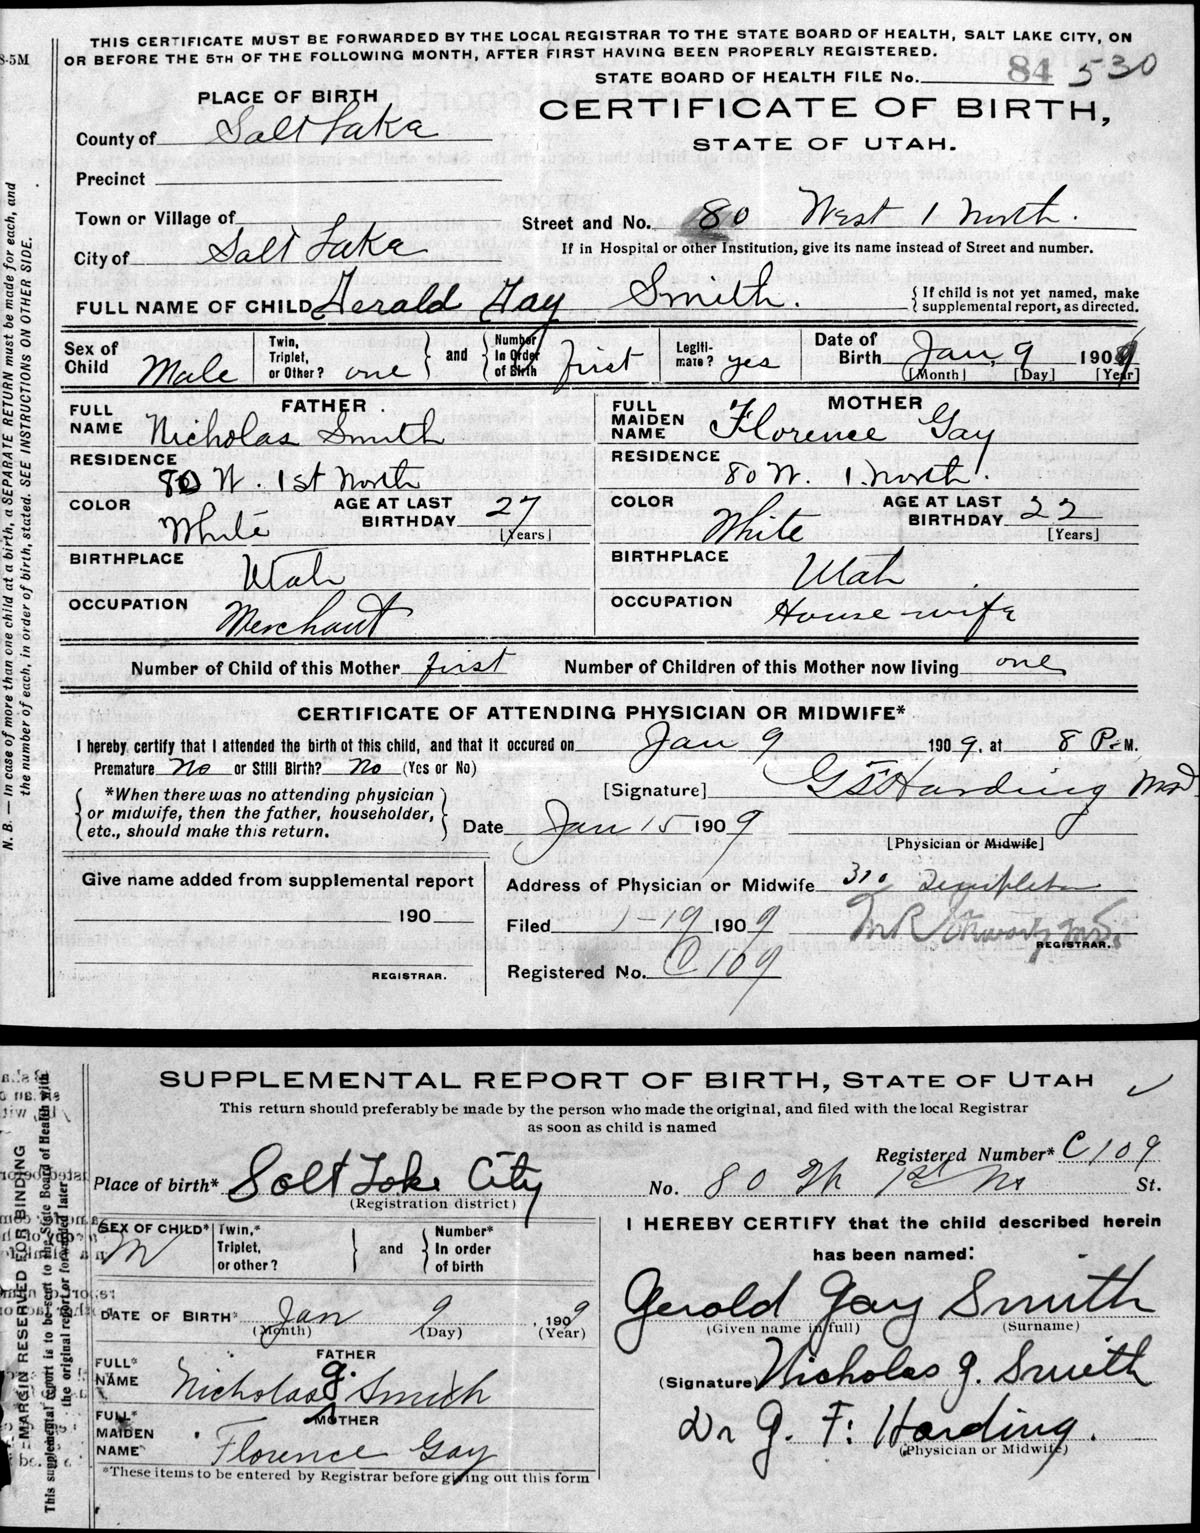 THIS CERTIFICATE MUST BE FORWARDED BY THE LOCAL REGISTRAR TO THE STATE BOARD OF HEALTH, SALT LAKE CITY, ON
OR BEFORE THE 5TH OF THE FOLLOWING MONTH, AFTER FIRST HAVING BEEN PROPERLY REGISTERED.
8-5M
STATE BOARD OF HEALTH FILE No. 84 530
PLACE OF BIRTH
CERTIFICATE OF BIRTH,
STATE OF UTAH.
County of Salt Lake
Precinct
Town or Village of
Street and No. 80 West 1 North.
City of Salt Lake
If in Hospital or other Institution, give its name instead of Street and number.
FULL NAME OF CHILD Gerald Gay Smith. { If child is not yet named, make
supplemental report, as directed.
Sex of Child Male
Twin, Triplet, or Other? one } and { Number In Order of Birth first
Legiti-mate? yes
Date of Birth Jan, 9 1909
[Month] [Day] [Year]
FATHER.
FULL NAME Nicholas Smith
RESIDENCE 80 W. 1st North
COLOR White AGE AT LAST BIRTHDAY 27 [Years]
BIRTHPLACE Utah
OCCUPATION Merchant
MOTHER
FULL MAIDEN NAME Florence Gay
RESIDENCE 80 W. 1. North.
COLOR White AGE AT LAST BIRTHDAY 22 [Years]
BIRTHPLACE Utah
OCCUPATION House-wife
Number of Child of this Mother first Number of Children of this Mother now living one
CERTIFICATE OF ATTENDING PHYSICIAN OR MIDWIFE*
I hereby certify that I attended the birth of this child, and that it occured on Jan 9 1909, at 8 P.M.
Premature No or Still Birth? No (Yes or No)
[Signature] G F Harding MD
{ *When there was no attending physician
or midwife, then the father, householder,
etc., should make this return. }
Date Jan 15 1909
[Physician or Midwife]
Give name added from supplemental report
190
REGISTRAR.
Address of Physician or Midwife 310 Templeton
Filed 1-19 1909
REGISTRAR.
Registered No. C 109
N. B. — In case of more than one child at a birth, a SEPARATE RETURN must be made for each, and
the number of each, in order of birth, stated. SEE INSTRUCTIONS ON OTHER SIDE.
SUPPLEMENTAL REPORT OF BIRTH, STATE OF UTAH
This return should preferably be made by the person who made the original, and filed with the local Registrar
as soon as child is named
Registered Number* C109
Place of birth* Salt Lake City No. 80 W 1st No St.
(Registration district)
SEX OF CHILD* M
Twin,* Triplet, or other? } and { Number* In order of birth
DATE OF BIRTH* Jan 9, 1909
(Month) (Day) (Year)
FATHER
FULL* NAME Nicholas G. Smith
MOTHER
FULL* MAIDEN NAME Florence Gay
*These items to be entered by Registrar before giving out this form
I HEREBY CERTIFY that the child described herein
has been named:
Gerald Gay Smith
(Given name in full) (Surname)
(Signature) Nicholas G. Smith
Dr G. F. Harding.
(Physician or Midwife)
MARGIN RESERVED FOR BINDING
This supplemental report is to be sent to the State Board of Health with
the original report or forwarded later